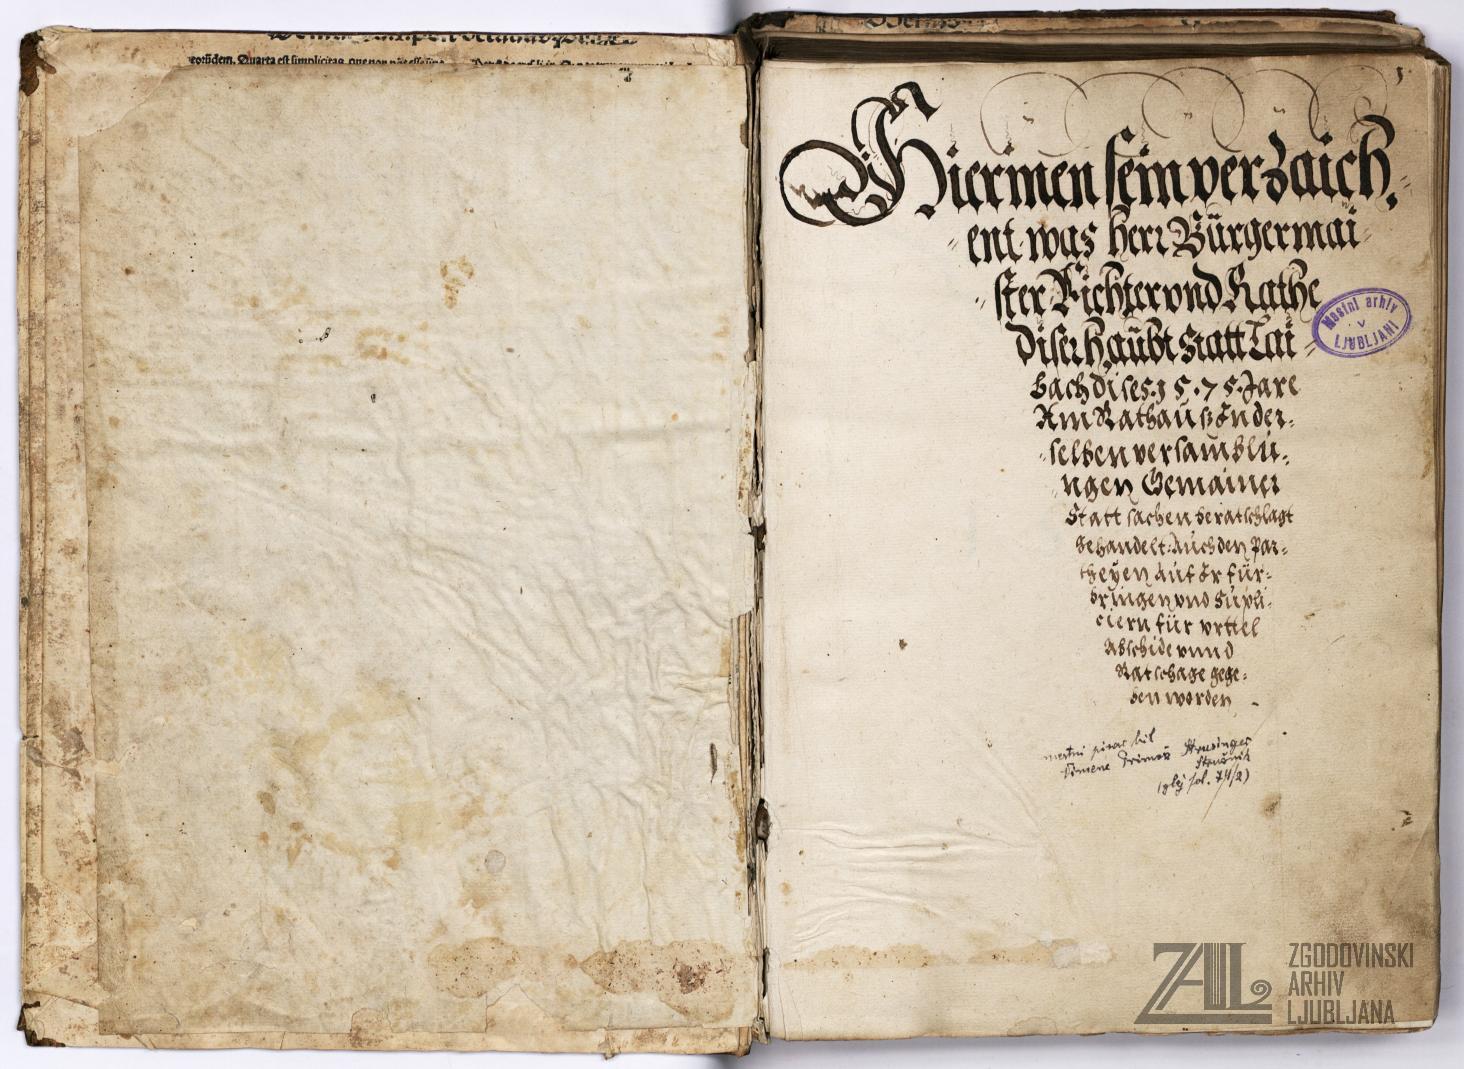 eorūdem. Quarta est simplicitas, que non
Hierinnen sein verzaich,
ent was herr Bürgermai
ster Richter vnd Rathe
diser haübt Statt Lai
bach dises 1575. Jare
Am Rathauß In der=
selben versamblü,
ngen Gemainer
Statt sachen beratschlagt
behandelt: Auch den Par=
theyen auf Ir für=
bringen vnd Supli
ciern für vrttel
Abschide vnnd
Ratschage gege=
ben worden
Mestni arhiv
v
LJUBLJANI
mestni pisar bil
Primož Strusinger
(glej fol. 74/2)
ZAL
ZGODOVINSKI
ARHIV
LJUBLJANA